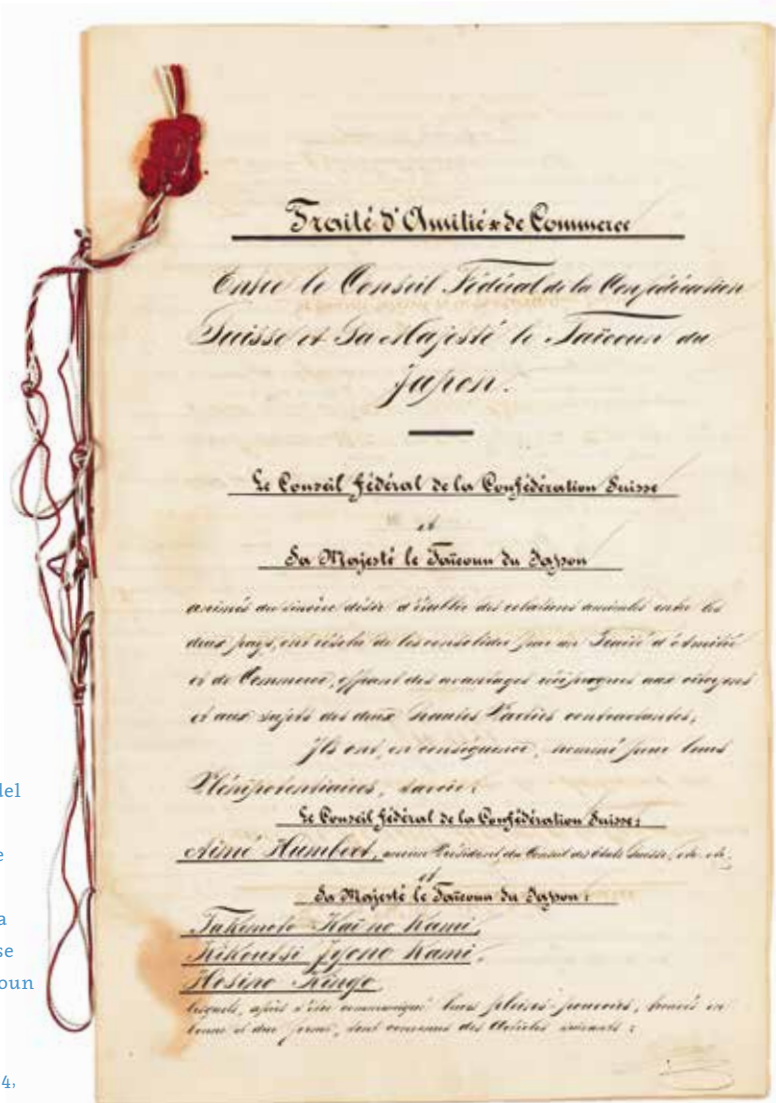 Traité d'Amitié & de Commerce
Entre le Conseil Fédéral de la Confédération
Suisse et Sa Majesté le Taïcoun du
Japon.
Le Conseil Fédéral de la Confédération Suisse
et
Sa Majesté le Taïcoun du Japon
animés du sincère désir d'établir des relations amicales entre les
deux pays, ont résolu de les consolider par un Traité d'Amitié
et de Commerce, offrant des avantages réciproques aux citoyens
et aux sujets des deux Hautes Parties contractantes,
Ils ont, en conséquence, nommé pour leurs
Plénipotentiaires, savoir:
Le Conseil Fédéral de la Confédération Suisse:
Aimé Humbert, ancien Président du Conseil des Etats Suisse, etc. etc.
et
Sa Majesté le Taïcoun du Japon:
Takemoto Kaï no Kami,
Kikoutsi Jyono Kami,
Hosino Kingo,
lesquels, après s'être communiqué leurs pleins-pouvoirs, trouvés en
bonne et due forme, sont convenus des Articles suivants:
del
e
a
se
oun
4,